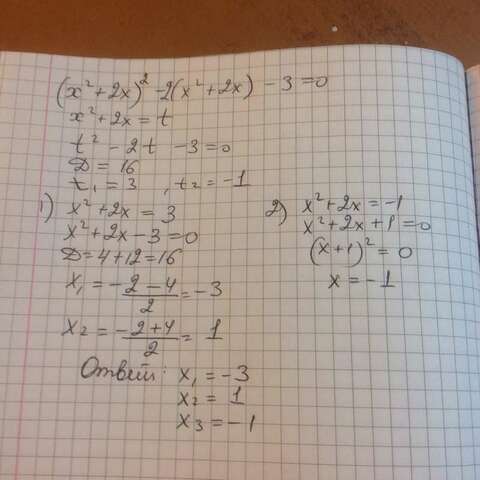 (x² + 2x)² - 2(x² + 2x) - 3 = 0
x² + 2x = t
t² - 2t - 3 = 0
D = 16
t₁ = 3 , t₂ = -1
1) x² + 2x = 3
x² + 2x - 3 = 0
D = 4 + 12 = 16
x₁ = (-2 - 4)/2 = -3
x₂ = (-2 + 4)/2 = 1
2) x² + 2x = -1
x² + 2x + 1 = 0
(x + 1)² = 0
x = -1
Ответ: x₁ = -3
x₂ = 1
x₃ = -1